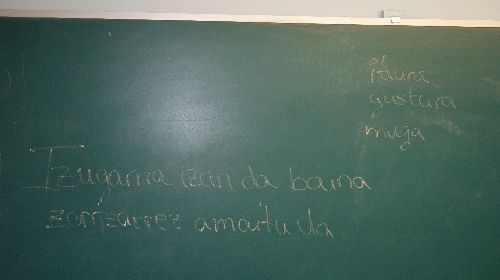 itaura
gustura
muga
Izugarria izan da baina
zoritxarrez amaitu da